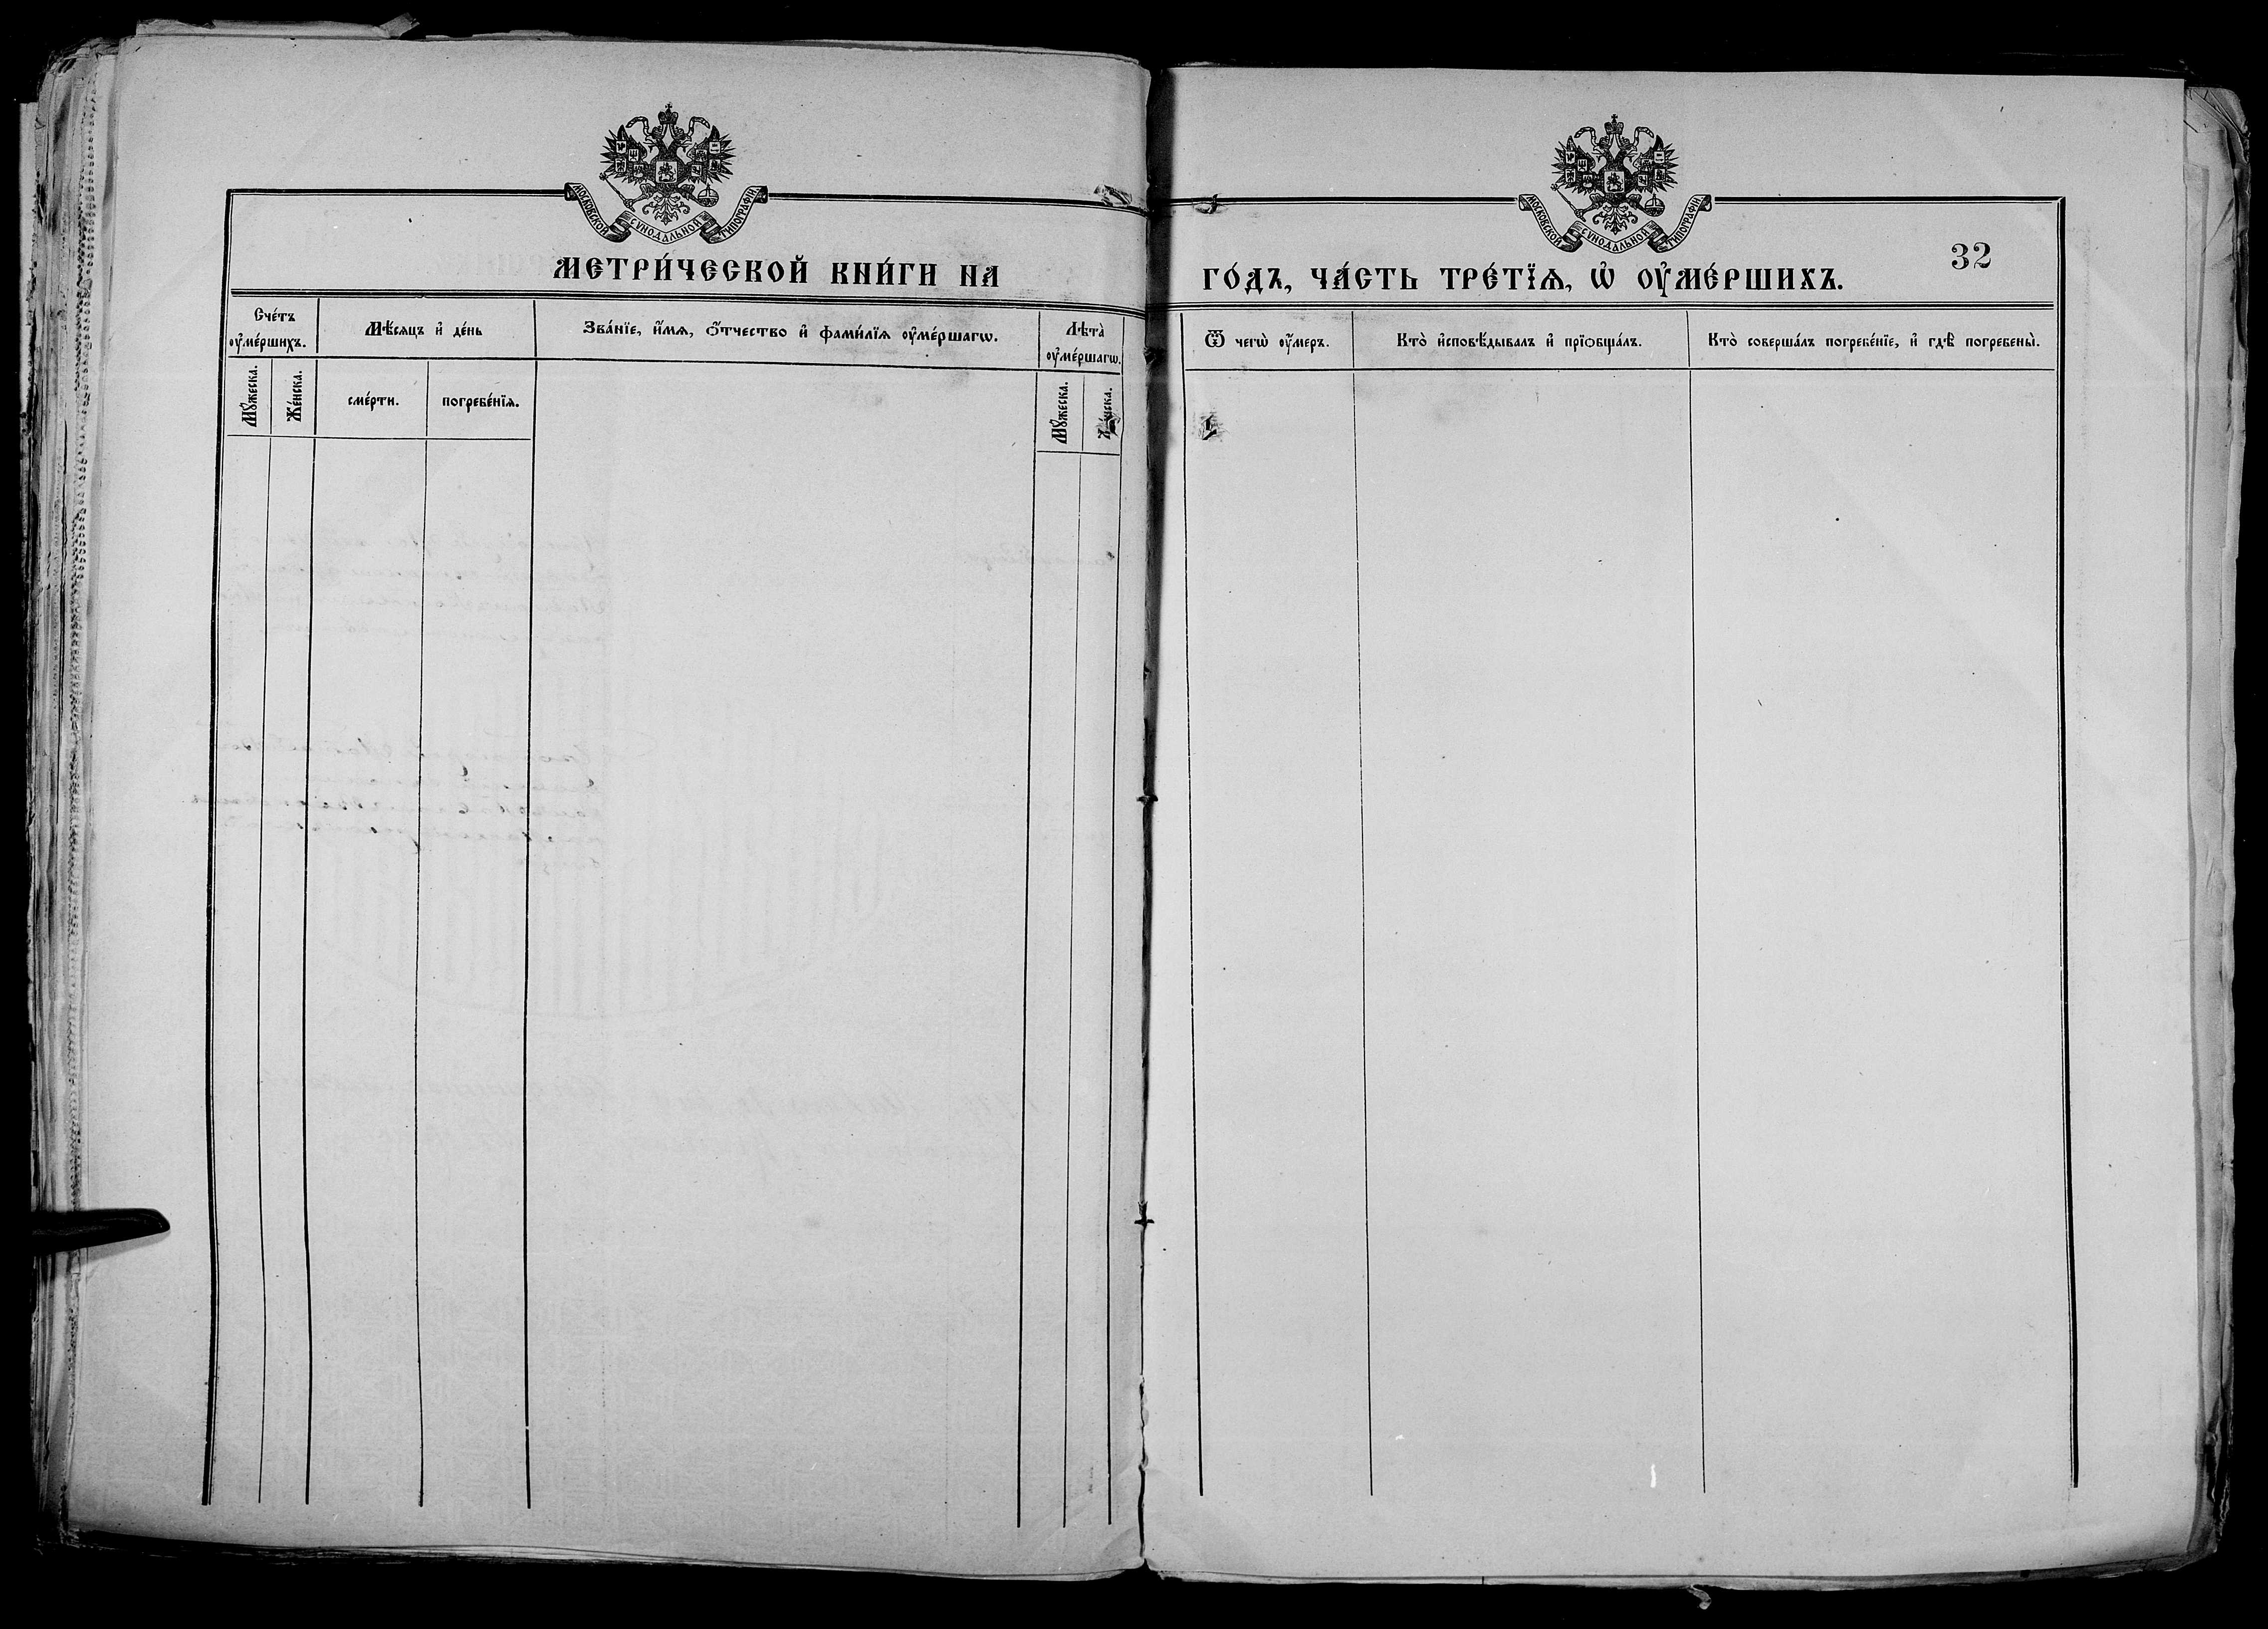 МОСКОВСКОЙ СѴНОДАЛЬНОЙ ТИПОГРАФІИ.
МЕТРИ́ЧЕСКОЙ КНИ́ГИ НА
Сче́тъ оу҆ме́ршихъ.
Мѣ́сяцъ и҆ де́нь
Зва́нїе, и҆́мѧ, ѻ҆́тчество и҆ фами́лїѧ оу҆ме́ршагѡ.
Лѣта̀ оу҆ме́ршагѡ.
Мꙋ́жеска.
Же́нска.
сме́рти.
погребе́нїѧ.
Мꙋ́жеска.
Же́нска.
МОСКОВСКОЙ СѴНОДАЛЬНОЙ ТИПОГРАФІИ.
32
ГО́ДЪ, ЧА́СТЬ ТРЕ́ТЇѦ, Ѡ҆ ОУ҆МЕ́РШИХЪ.
Ѿ чегѡ̀ оу҆́меръ.
Кто̀ и҆сповѣ́дывалъ и҆ прїѻбща́лъ.
Кто̀ соверша́лъ погребе́нїе, и҆ гдѣ̀ погребены̀.